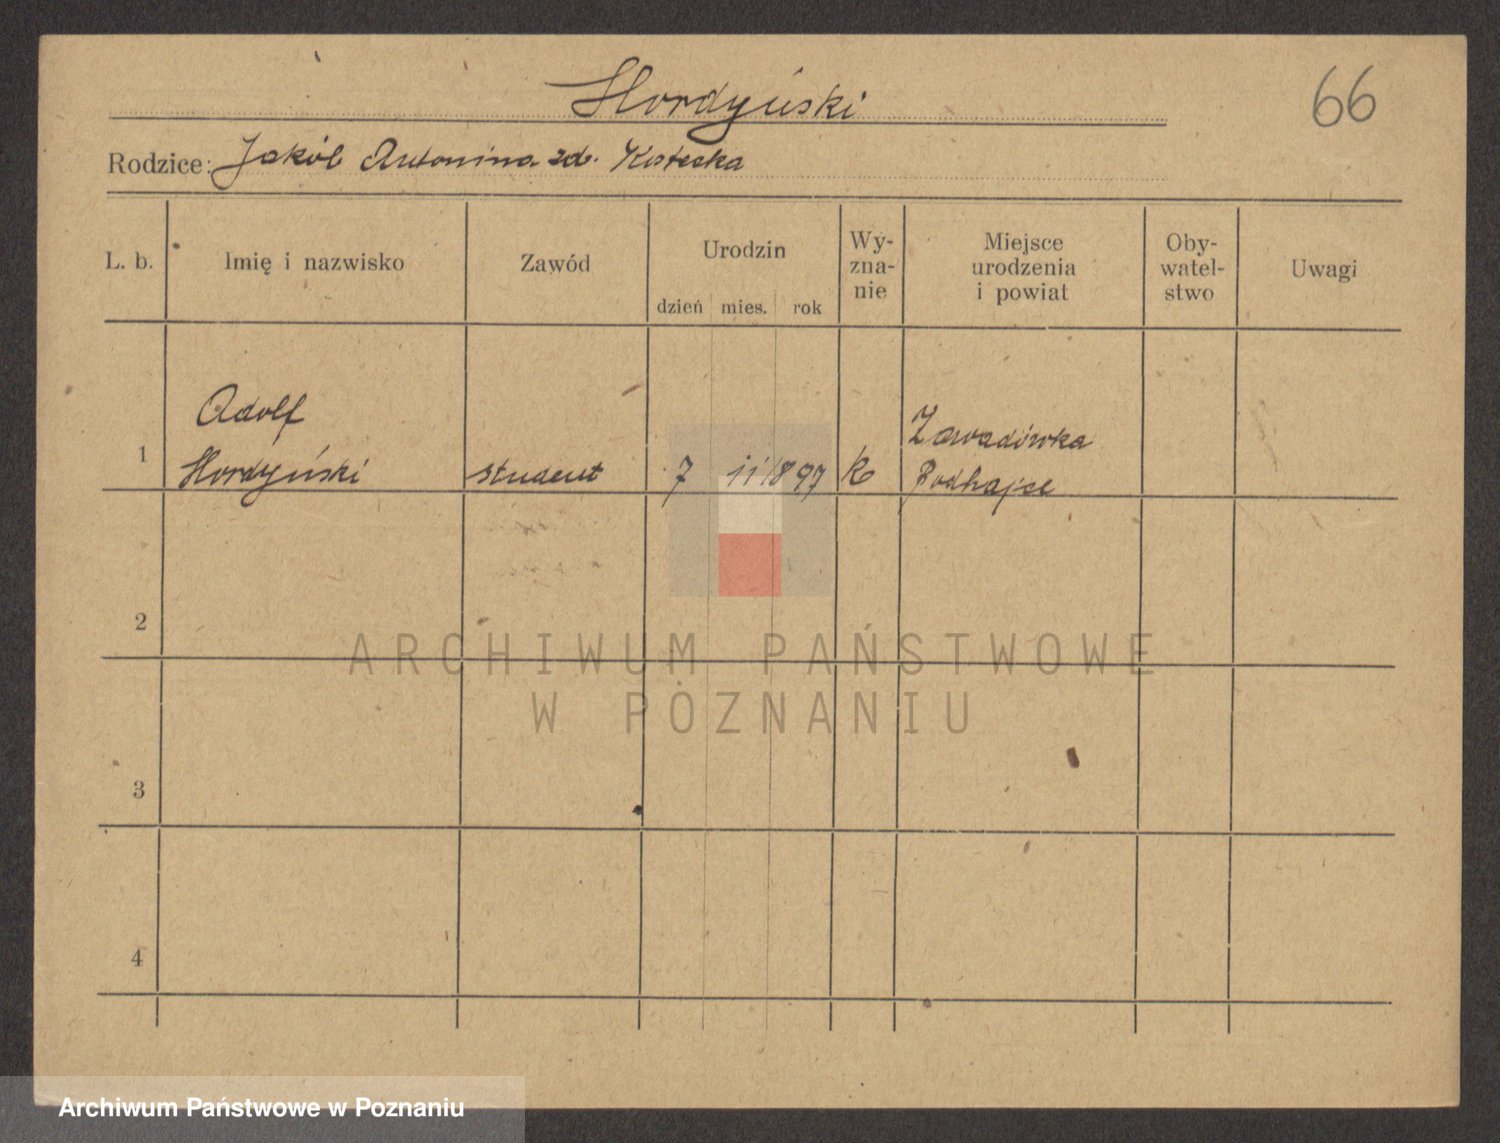 Hordyński
66
Rodzice: Jakób Antonina zd. Kotecka
L. b.
Imię i nazwisko
Zawód
Urodzin
dzień mies. rok
Wy-
zna-
nie
Miejsce
urodzenia
i powiat
Oby-
watel-
stwo
Uwagi
1
Adolf
Hordyński
student
7 11 1897
k
Zawadówka
Podhajce
2
3
4
ARCHIWUM PAŃSTWOWE
W POZNANIU
Archiwum Państwowe w Poznaniu